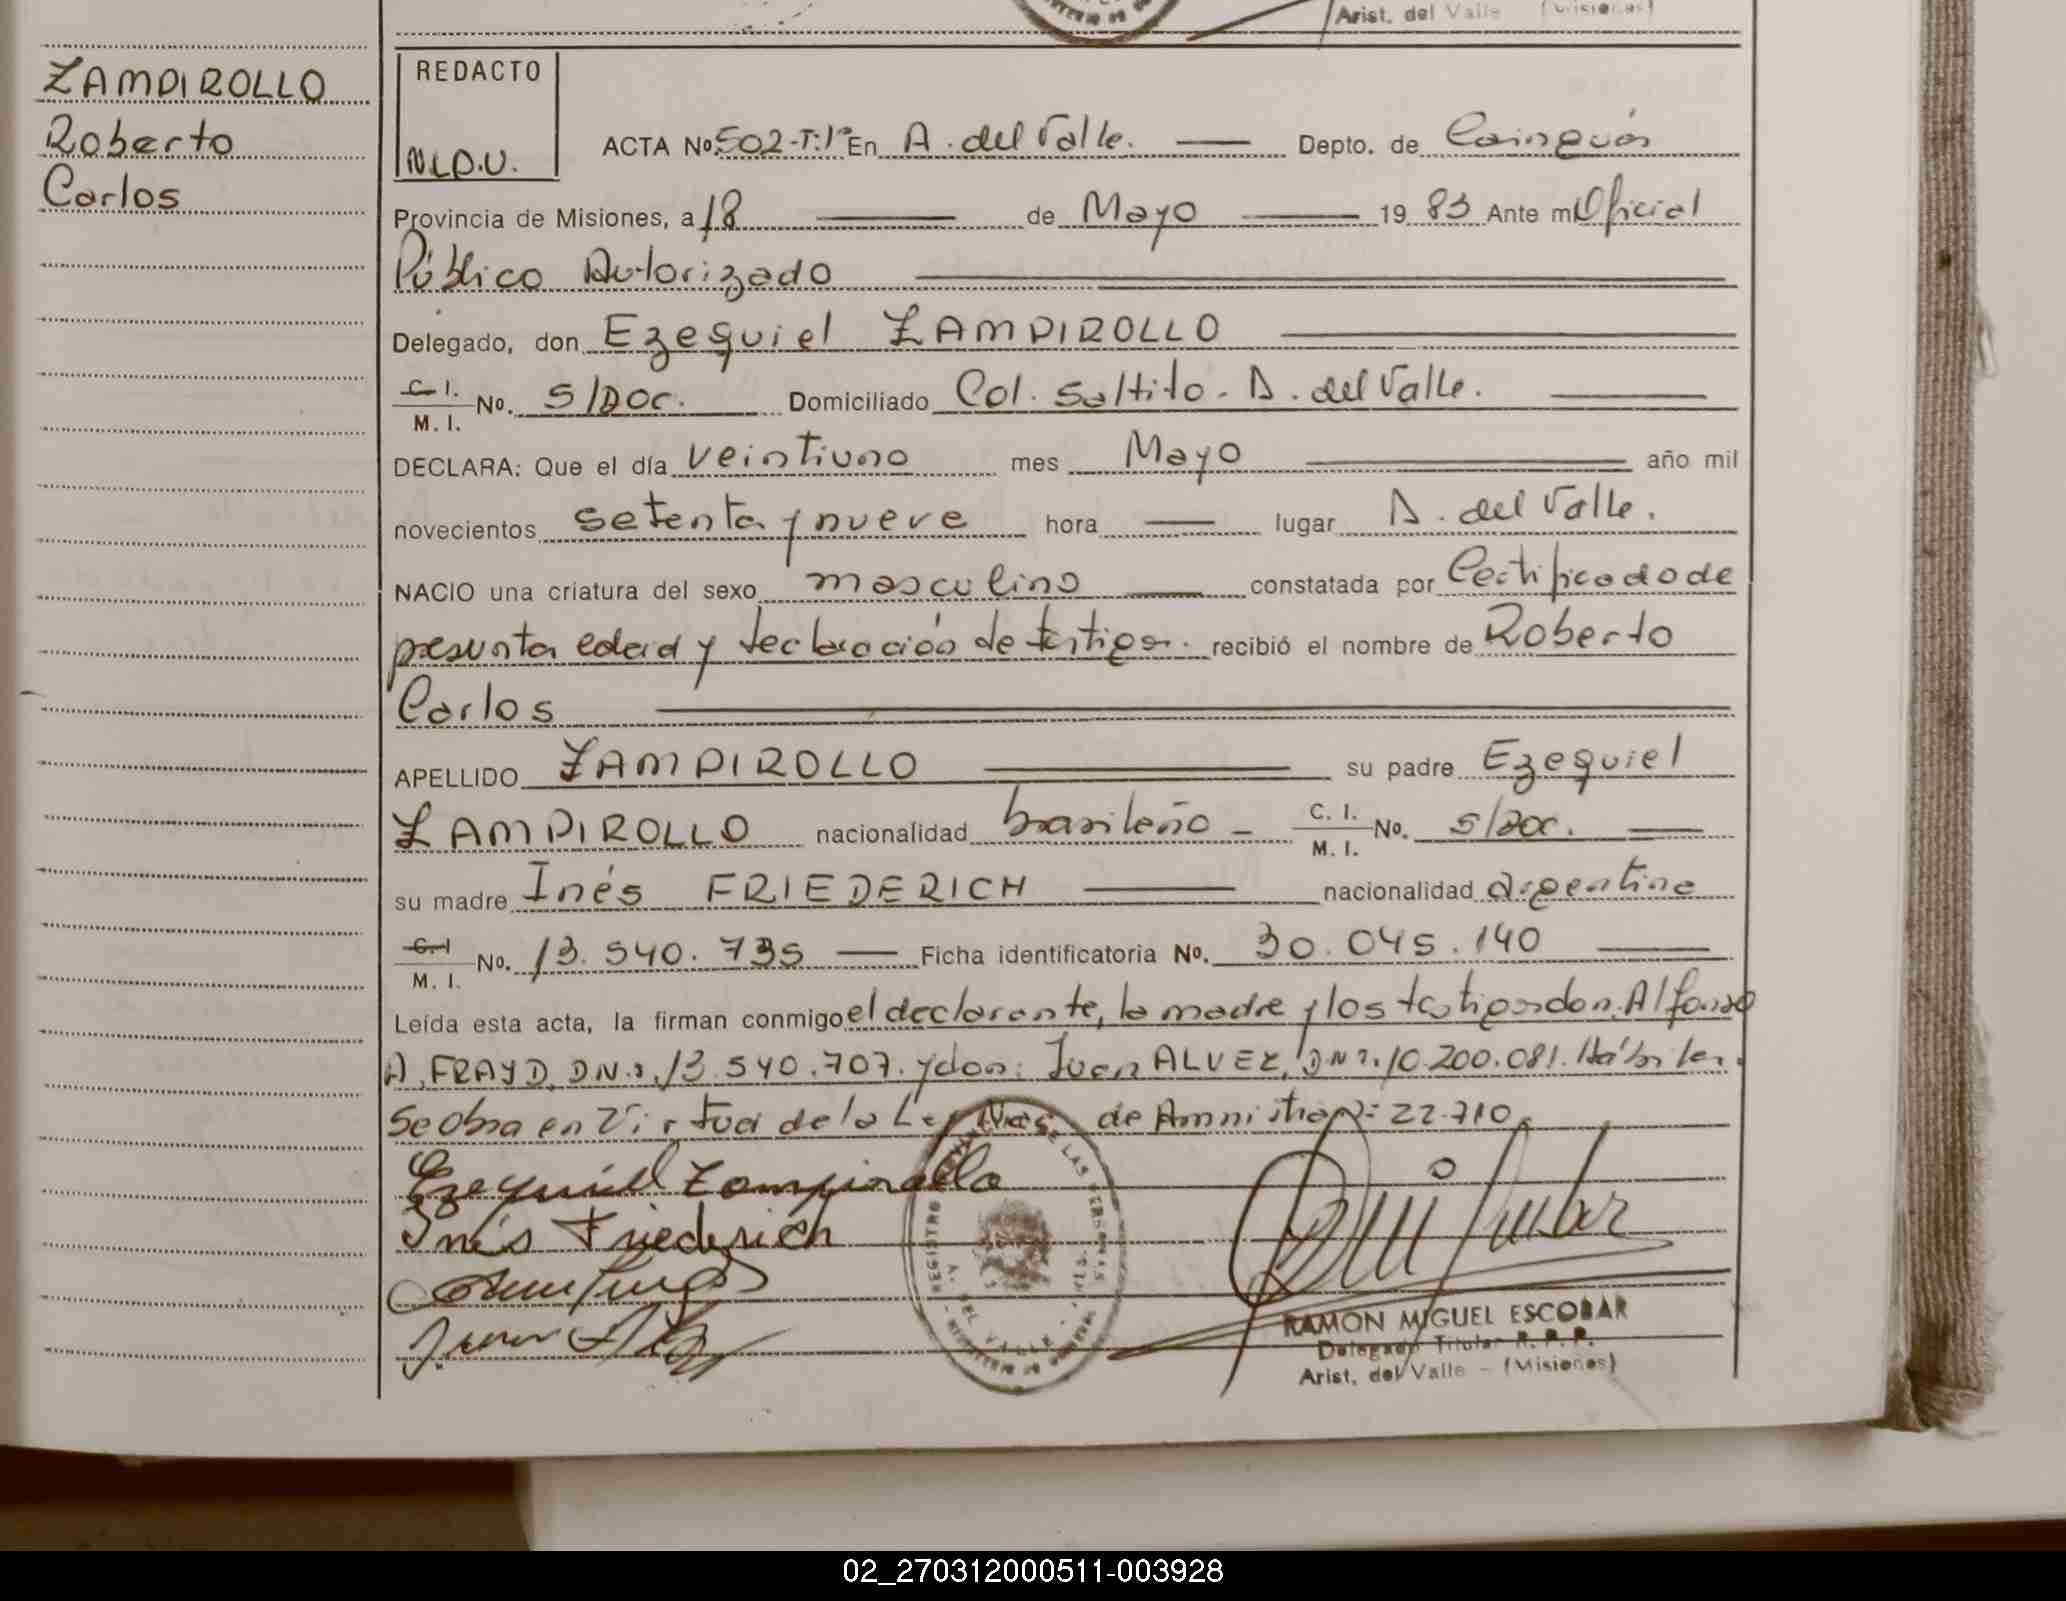 Arist. del Valle (Misiones)
ZAMPIROLLO
Roberto
Carlos
REDACTO
N.L.D.U.
ACTA No. 502-T:1º En A. del Valle. Depto. de Cainguás
Provincia de Misiones, a 18 de Mayo 19 83 Ante mí Oficial
Público Autorizado
Delegado, don Ezequiel ZAMPIROLLO
C.I. M.I. No. S/DOC. Domiciliado Col. Saltito - A. del Valle.
DECLARA: Que el día veintiuno mes Mayo año mil
novecientos setenta y nueve hora lugar A. del Valle.
NACIO una criatura del sexo masculino constatada por Certificado de
presunta edad y declaración de testigos. recibió el nombre de Roberto
Carlos
APELLIDO ZAMPIROLLO su padre Ezequiel
ZAMPIROLLO nacionalidad brasileño - C. I. M. I. No. s/doc.
su madre Inés FRIEDERICH nacionalidad argentina
C.I M. I. No. 13.540.735 Ficha identificatoria No. 30.045.140
Leída esta acta, la firman conmigo el declarante, la madre y los testigos don: Alfonso
A. FRAYD, D.N.I. 13.540.707. y don: Juan ALVEZ, DNI. 10.200.081. Hábiles.
Se obra en Virtud de la Ley Nac. de Amnistia Nº: 22.710.
Ezequiel Zampirollo
Inés Friederich
REGISTRO DE LAS PERSONAS
A. DEL VALLE
RAMON MIGUEL ESCOBAR
Delegado Titular R. P. P.
Arist. del Valle - (Misiones)
02_270312000511-003928